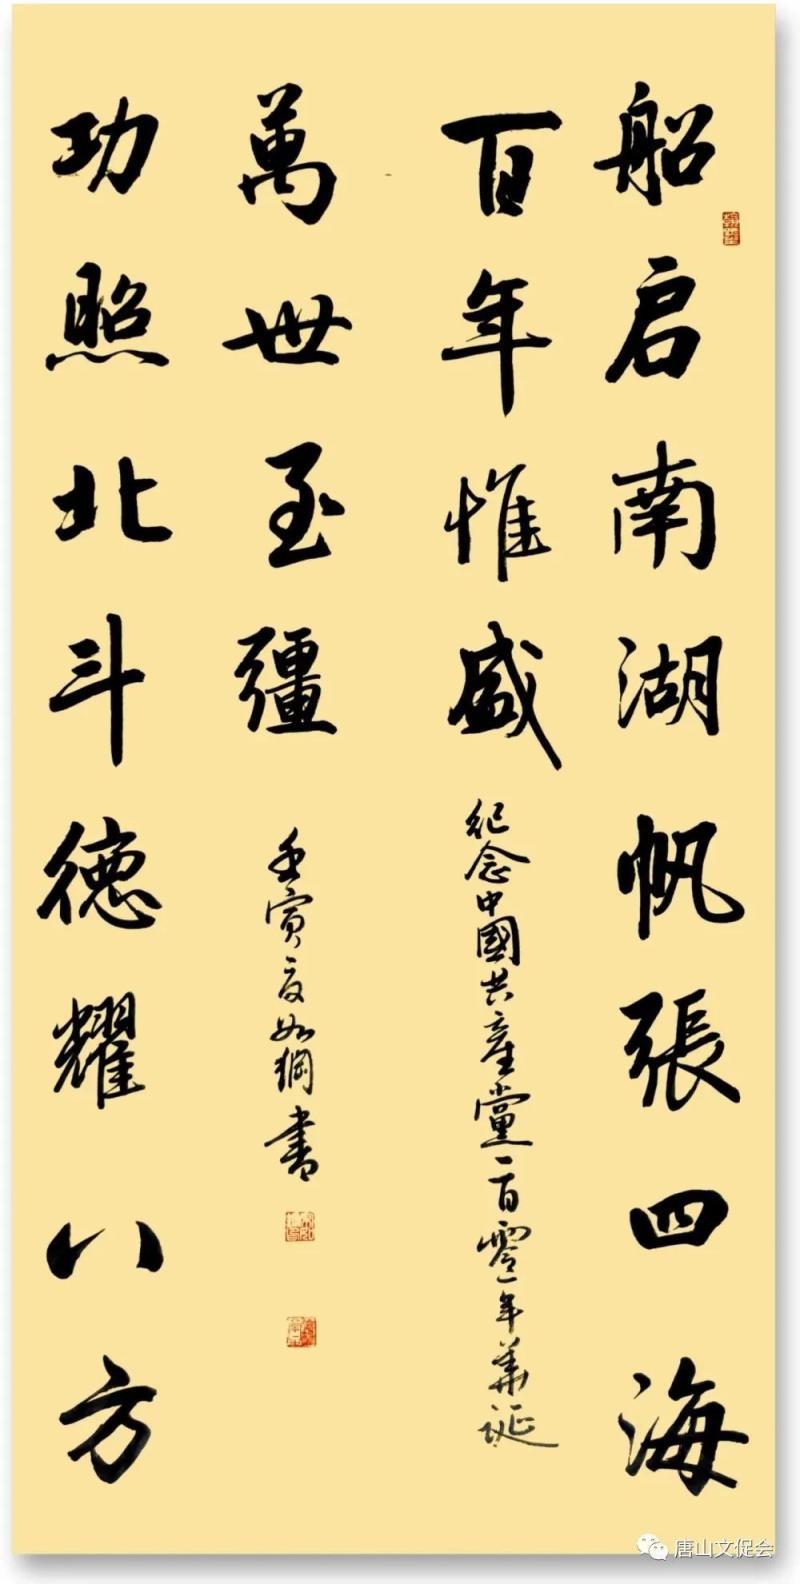 船启南湖帆張四海
百年惟盛
紀念中國共産黨一百零一年華誕
功照北斗德耀八方
萬世至彊
壬寅夏如書
唐山文促会